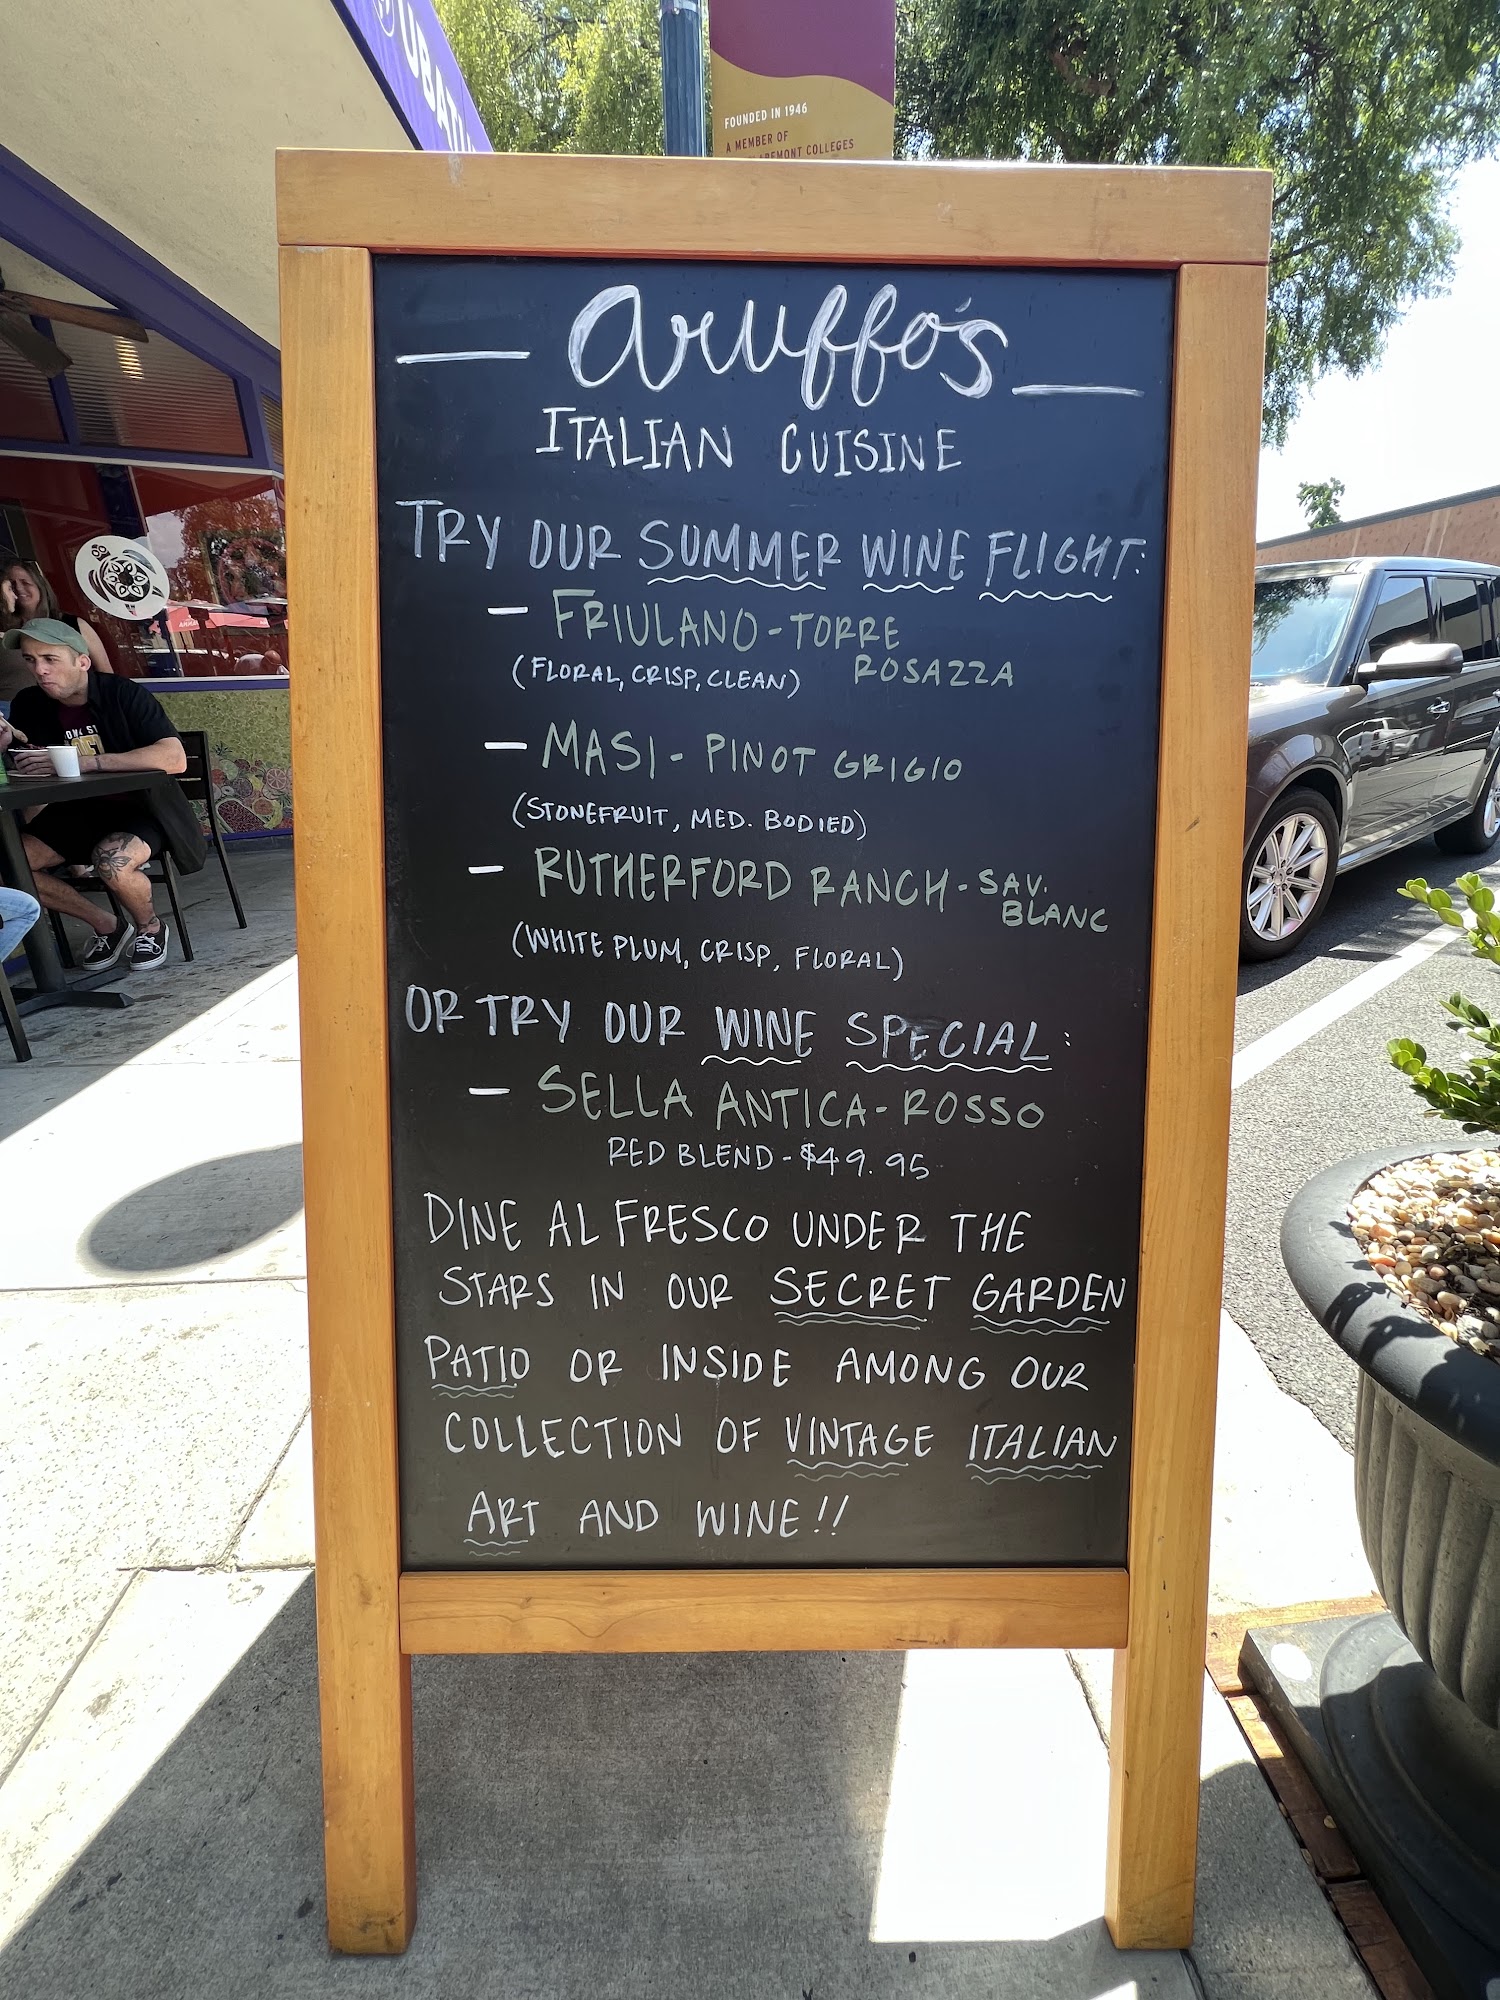 UBAT
FOUNDED IN 1946
A MEMBER OF
CLAREMONT COLLEGES
aruffo's
ITALIAN CUISINE
TRY OUR SUMMER WINE FLIGHT:
- FRIULANO - TORRE
ROSAZZA
(FLORAL, CRISP, CLEAN)
- MASI - PINOT GRIGIO
(STONEFRUIT, MED. BODIED)
- RUTHERFORD RANCH - SAV.
BLANC
(WHITE PLUM, CRISP, FLORAL)
OR TRY OUR WINE SPECIAL:
- SELLA ANTICA - ROSSO
RED BLEND - $49.95
DINE AL FRESCO UNDER THE
STARS IN OUR SECRET GARDEN
PATIO OR INSIDE AMONG OUR
COLLECTION OF VINTAGE ITALIAN
ART AND WINE!!